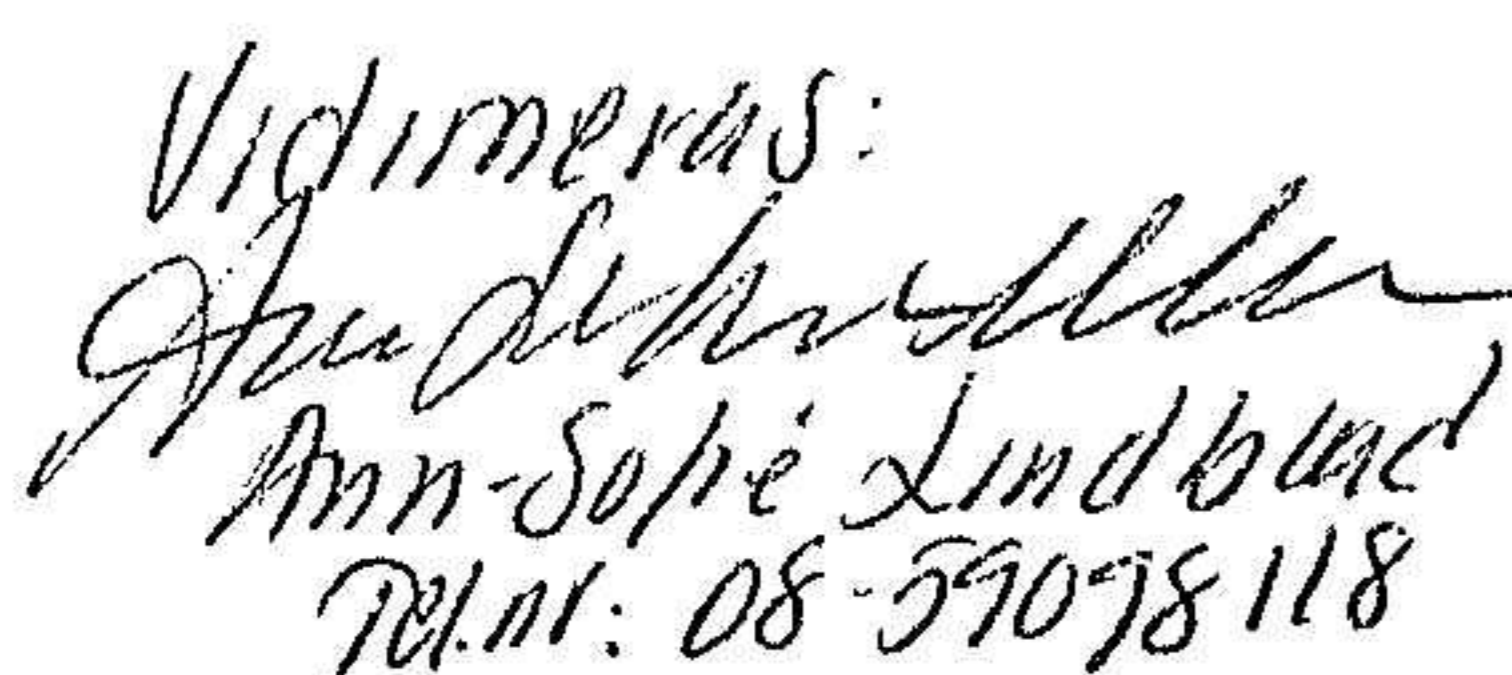 Vidimeras:
Ann-Sofie Lindblad
Tel.nr: 08-59098118